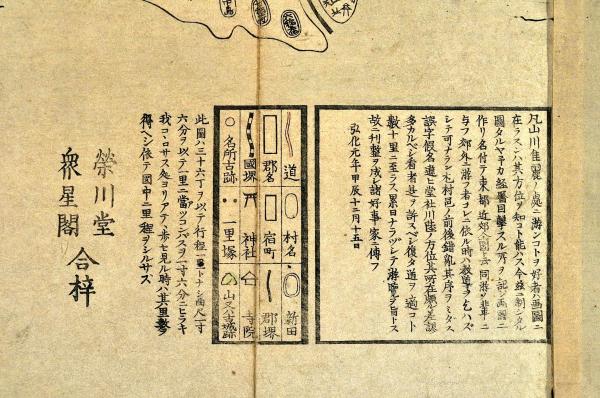 凡山川佳麗ノ處ニ游ンコトヲ好者ハ画圖ニ
在ラズンハ其方位ヲ知コト能ハズ今茲ニ制シタル
圖タルヤ予カ経歴目撃スル所ヲ記シ画圖ニ
作リ名付テ東都近郊全圖ト云同游ノ輩ニ
与フ郊外ニ游フ者コレニ依ル時ハ教導ヲ乞ハズ
シテ可ナランカ村邑ノ前後錯乱其序ヲミダス
誤字假名違ヒ堂社川陸ノ方位其所在ノ差誤
多カルベシ看者是ヲ許スベシ復タ道ヲ適コト
数十里ニ至ラハ累日ナラズシテ游覧シ盲トス
故ニ刊整成諸好事ノ家ニ傳フ
弘化元年甲辰十二月十五日
道
村名
新田
郡名
宿町
郡堺
國堺
神社
寺院
名所古跡
一里塚
山又ハ古城跡
此圖ハ三十六丁ヲ以テ行程一里トナシ曲尺一寸
六分ヲ以テ一里ニ當ツコンパスヲ一寸六分ニヒラキ
我コヽロサス処ヨリアテヽ歩セ見ル時ハ其里數ヲ
得ヘシ依テ國中ニ里程ヲシルサス
榮川堂
衆星閣
合梓